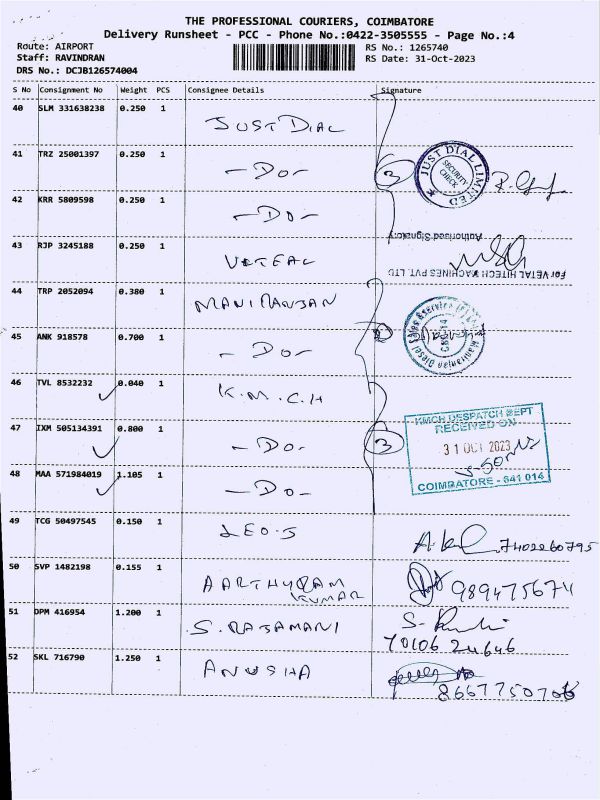 THE PROFESSIONAL COURIERS, COIMBATORE
Delivery Runsheet - PCC - Phone No.:0422-3505555 - Page No.:4
Route: AIRPORT RS No.: 1265740
Staff: RAVINDRAN RS Date: 31-Oct-2023
DRS No.: DCJB126574004
S No Consignment No Weight PCS Consignee Details Signature
40 SLM 331638238 0.250 1 JUST DIAL
41 TRZ 25001397 0.250 1 -DO- 3 JUST DIAL LIMITED SECURITY CHECK
42 KRR 5809598 0.250 1 -DO-
Authorised Signatory
43 RJP 3245188 0.250 1
For VETAL HITECH MACHINES PVT. LTD
44 TRP 2052094 0.380 1 MANIRANJAN
45 ANK 918578 0.700 1 -DO-
46 TVL 8532232 0.040 1 K.M.C.H
47 IXM 505134391 0.800 1 -DO- 3
KMCH DESPATCH DEPT
RECEIVED ON
31 OCT 2023
COIMBATORE - 641 014
48 MAA 571984019 1.105 1 -DO-
49 TCG 50497545 0.150 1 LEO.S 7402260795
50 SVP 1482198 0.155 1 AARTHYRAM
KUMAR 989475674
51 DPM 416954 1.200 1 S. RAJAMANI
70106 24646
52 SKL 716790 1.250 1 ANUSHA